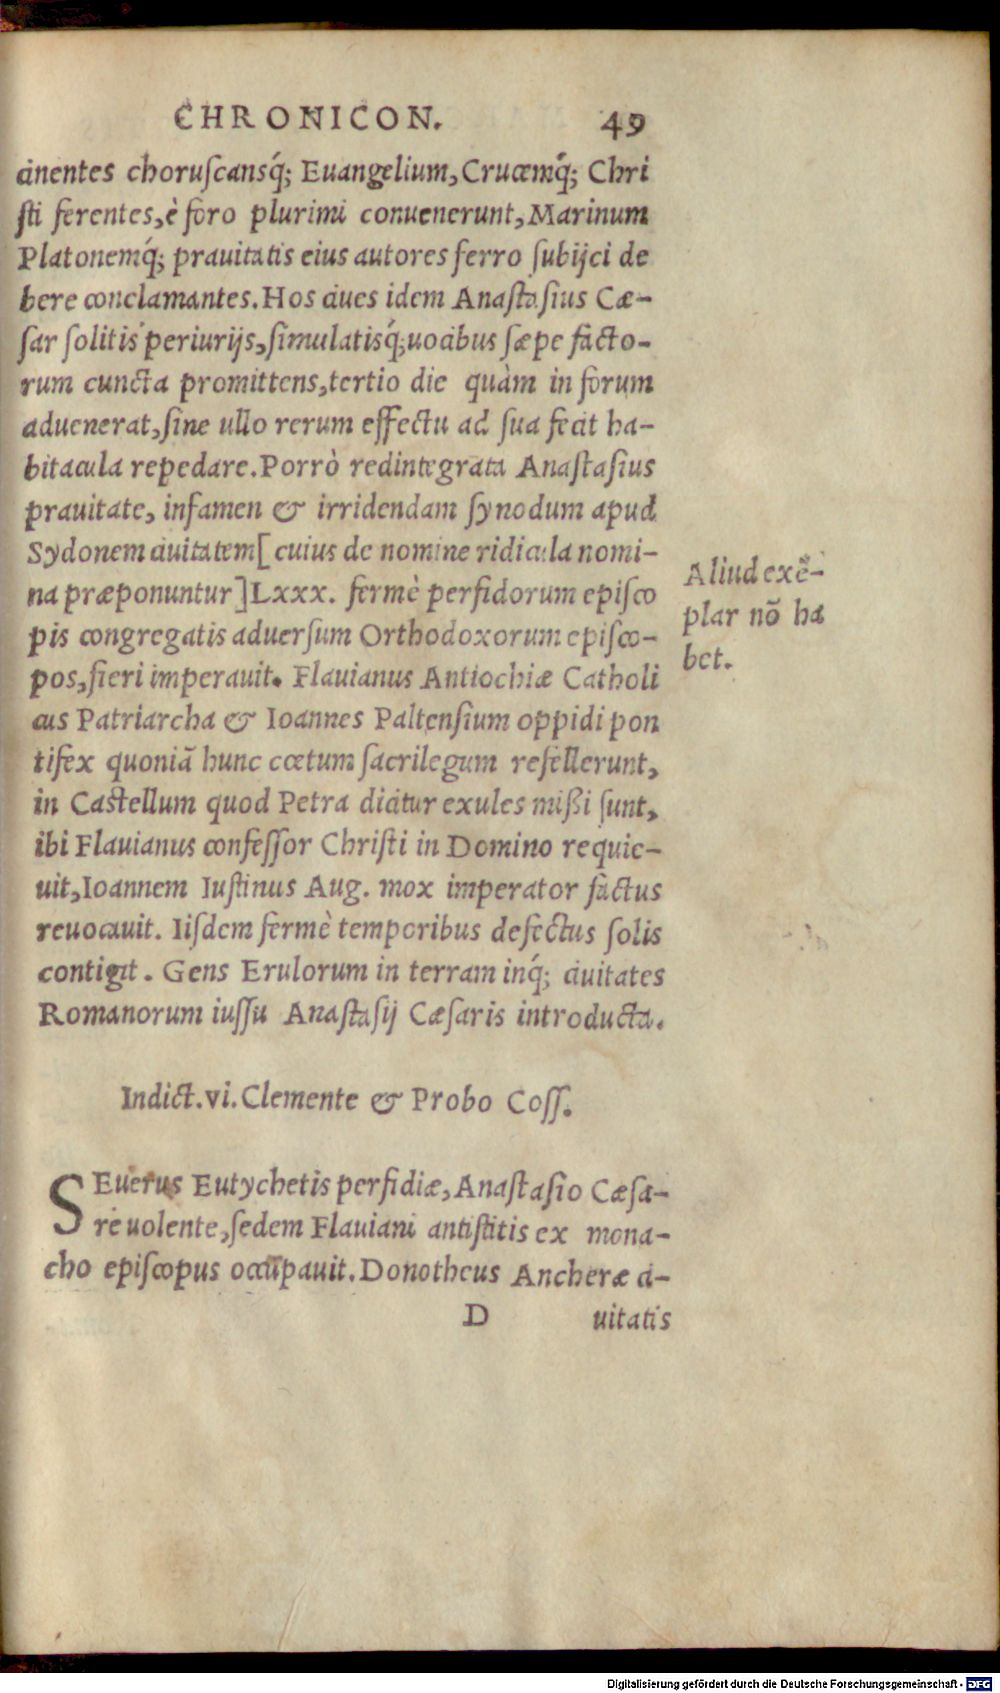 CHRONICON. 49
cinentes choruscansq́; Euangelium, Crucemq́; Chri
sti ferentes, è foro plurimi conuenerunt, Marinum
Platonemq́; prauitatis eius autores ferro subijci de
bere conclamantes. Hos ciues idem Anastasius Cæ-
sar solitis periurijs, simulatisq́; uocibus sæpe facto-
rum cuncta promittens, tertio die quàm in forum
aduenerat, sine ullo rerum effectu ad sua fecit ha-
bitacula repedare. Porrò redintegrata Anastasius
prauitate, infamen & irridendam synodum apud
Sydonem ciuitatem [ cuius de nomine ridicula nomi-
na præponuntur ] Lxxx. fermè perfidorum episco
pis congregatis aduersum Orthodoxorum episco-
pos, fieri imperauit. Flauianus Antiochiæ Catholi
cus Patriarcha & Ioannes Paltensium oppidi pon
tifex quoniã hunc cœtum sacrilegum refellerunt,
in Castellum quod Petra dicitur exules mißi sunt,
ibi Flauianus confessor Christi in Domino requie-
uit, Ioannem Iustinus Aug. mox imperator factus
reuocauit. Iisdem fermè temporibus defectus solis
contigit. Gens Erulorum in terram inq́; ciuitates
Romanorum iussu Anastasij Cæsaris introducta.
Aliud exẽ-
plar nõ ha
bet.
Indict. vi. Clemente & Probo Coss.
SEuerus Eutychetis perfidiæ, Anastasio Cæsa-
re uolente, sedem Flauiani antistitis ex mona-
cho episcopus occupauit. Donotheus Ancheræ ci-
D uitatis
Digitalisierung gefördert durch die Deutsche Forschungsgemeinschaft - DFG